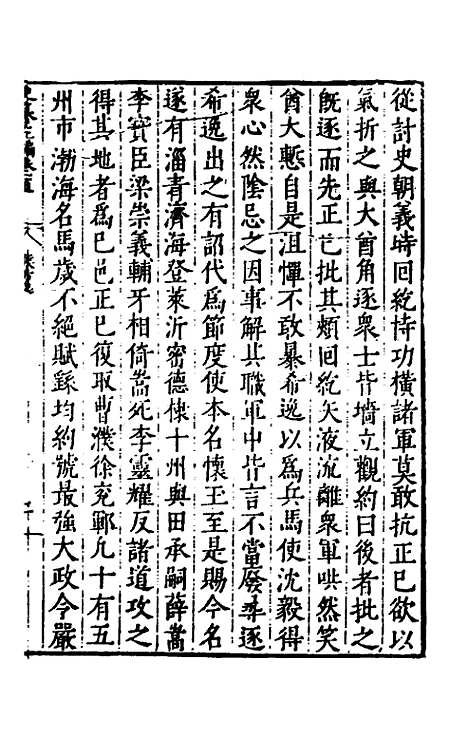 從討史朝義時回紇恃功橫諸軍莫敢抗正已欲以
氣折之與大酋角逐衆士皆墻立觀約曰後者批之
旣逐而先正已批其頰回紇矢液流離衆軍哄然笑
酋大慙自是沮憚不敢暴希逸以爲兵馬使沈毅得
衆心然陰忌之因事解其職軍中皆言不當廢尋逐
希逸出之有詔代爲節度使本名懷玉至是賜今名
遂有淄青濟海登萊沂密德棣十州與田承嗣薛嵩
李寶臣梁崇義輔牙相倚嵩死李靈耀反諸道攻之
得其地者爲已邑正已復取曹濮徐兖鄆凡十有五
州市渤海名馬歲不絕賦繇均約號最強大政令嚴